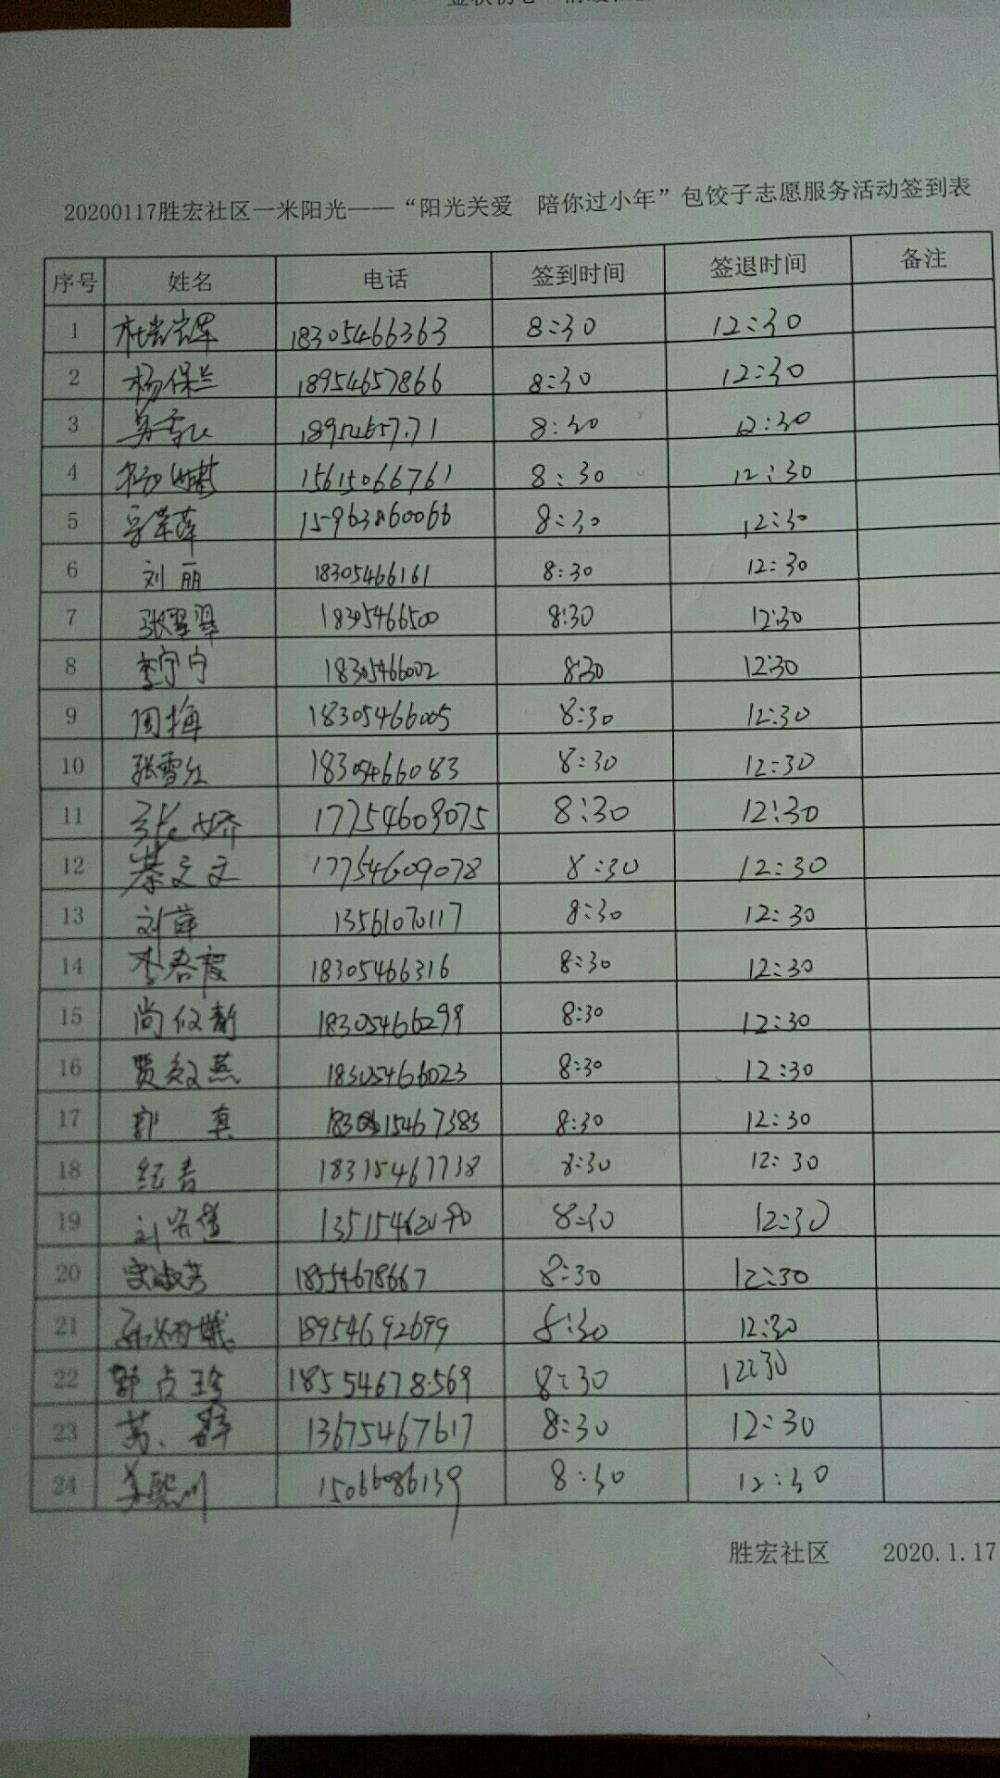 20200117胜宏社区一米阳光——“阳光关爱 陪你过小年”包饺子志愿服务活动签到表
序号 姓名 电话 签到时间 签退时间 备注
1 18305466363 8:30 12:30
2 杨保兰 18954657866 8:30 12:30
3 8:30 12:30
4 15615066761 8:30 12:30
5 15963860066 8:30 12:30
6 刘丽 18305466161 8:30 12:30
7 张翠翠 18305466500 8:30 12:30
8 李宁宁 18305466002 8:30 12:30
9 周梅 18305466005 8:30 12:30
10 张雪红 18305466083 8:30 12:30
11 张娇 17754609075 8:30 12:30
12 蔡文文 17754609078 8:30 12:30
13 刘萍 13561070117 8:30 12:30
14 李春霞 18305466316 8:30 12:30
15 18305466299 8:30 12:30
16 18305466023 8:30 12:30
17 郭真 8:30 12:30
18 纪青 18315467738 8:30 12:30
19 8:30 12:30
20 宋淑芳 18554678667 8:30 12:30
21 18954692699 8:30 12:30
22 18554678569 8:30 12:30
23 13675467617 8:30 12:30
24 15066086139 8:30 12:30
胜宏社区 2020.1.17